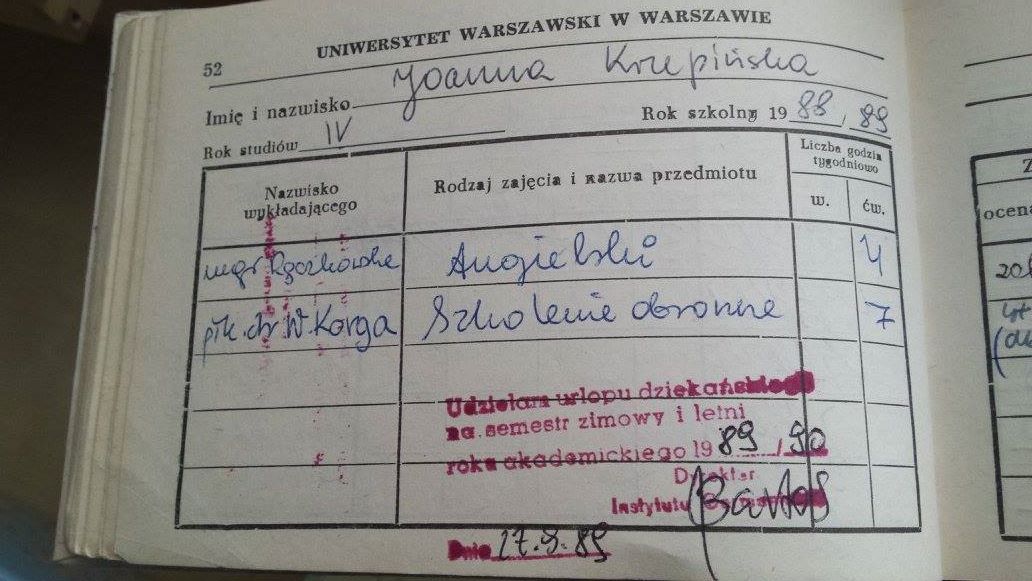 UNIWERSYTET WARSZAWSKI W WARSZAWIE
52
Imię i nazwisko Joanna Krzepińska
Rok studiów IV Rok szkolny 1988/89
Nazwisko wykładającego
Rodzaj zajęcia i nazwa przedmiotu
Liczba godzin
tygodniowo
w. ćw.
mgr Angielski 4
płk. dr W. Korga Szkolenie obronne 7
Udzielam urlopu dziekańskiego
na semestr zimowy i letni
roku akademickiego 1989/90
Dyrektor
Instytutu
Dnia 27.9.89
ocena